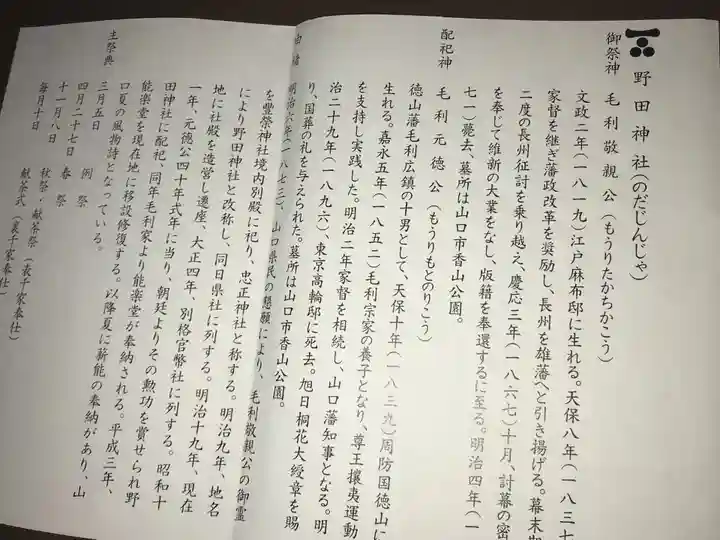 野田神社(のだじんじゃ)
御祭神 毛利敬親公(もうりたかちかこう)
文政二年(一八一九)江戸麻布邸に生れる。天保八年(一八三七
家督を継ぎ藩政改革を奨励し、長州を雄藩へと引き揚げる。幕末期
二度の長州征討を乗り越え、慶応三年(一八六七)十月、討幕の密
を奉じて維新の大業をなし、版籍を奉還するに至る。明治四年(一
七一)薨去、墓所は山口市香山公園。
配祀神 毛利元徳公(もうりもとのりこう)
徳山藩毛利広鎮の十男として、天保十年(一八三九)周防国徳山に
生れる。嘉永五年(一八五二)毛利宗家の養子となり、尊王攘夷運動
を支持し実践した。明治二年家督を相続し、山口藩知事となる。明
治二十九年(一八九六)、東京高輪邸に死去。旭日桐花大綬章を賜
り、国葬の礼を与えられた。墓所は山口市香山公園。
由緒
明治六年(一八七三)、山口県民の懇願により、毛利敬親公の御霊
を豊榮神社境内別殿に祀り、忠正神社と称する。明治九年、地名
により野田神社と改称し、同日県社に列する。明治十九年、現在
地に社殿を造営し遷座、大正四年、別格官幣社に列する。昭和十
一年、元徳公四十年式年に当り、朝廷よりその勲功を賞せられ野
田神社に配祀、同年毛利家より能楽堂が奉納される。平成三年、
能楽堂を現在地に移設修復する。以降夏に薪能の奉納があり、山
口夏の風物詩となっている。
主祭典
三月五日 例祭
四月二十七日 春祭
十一月八日 秋祭・献茶祭(表千家奉仕)
毎月十日 献茶式(裏千家奉仕)